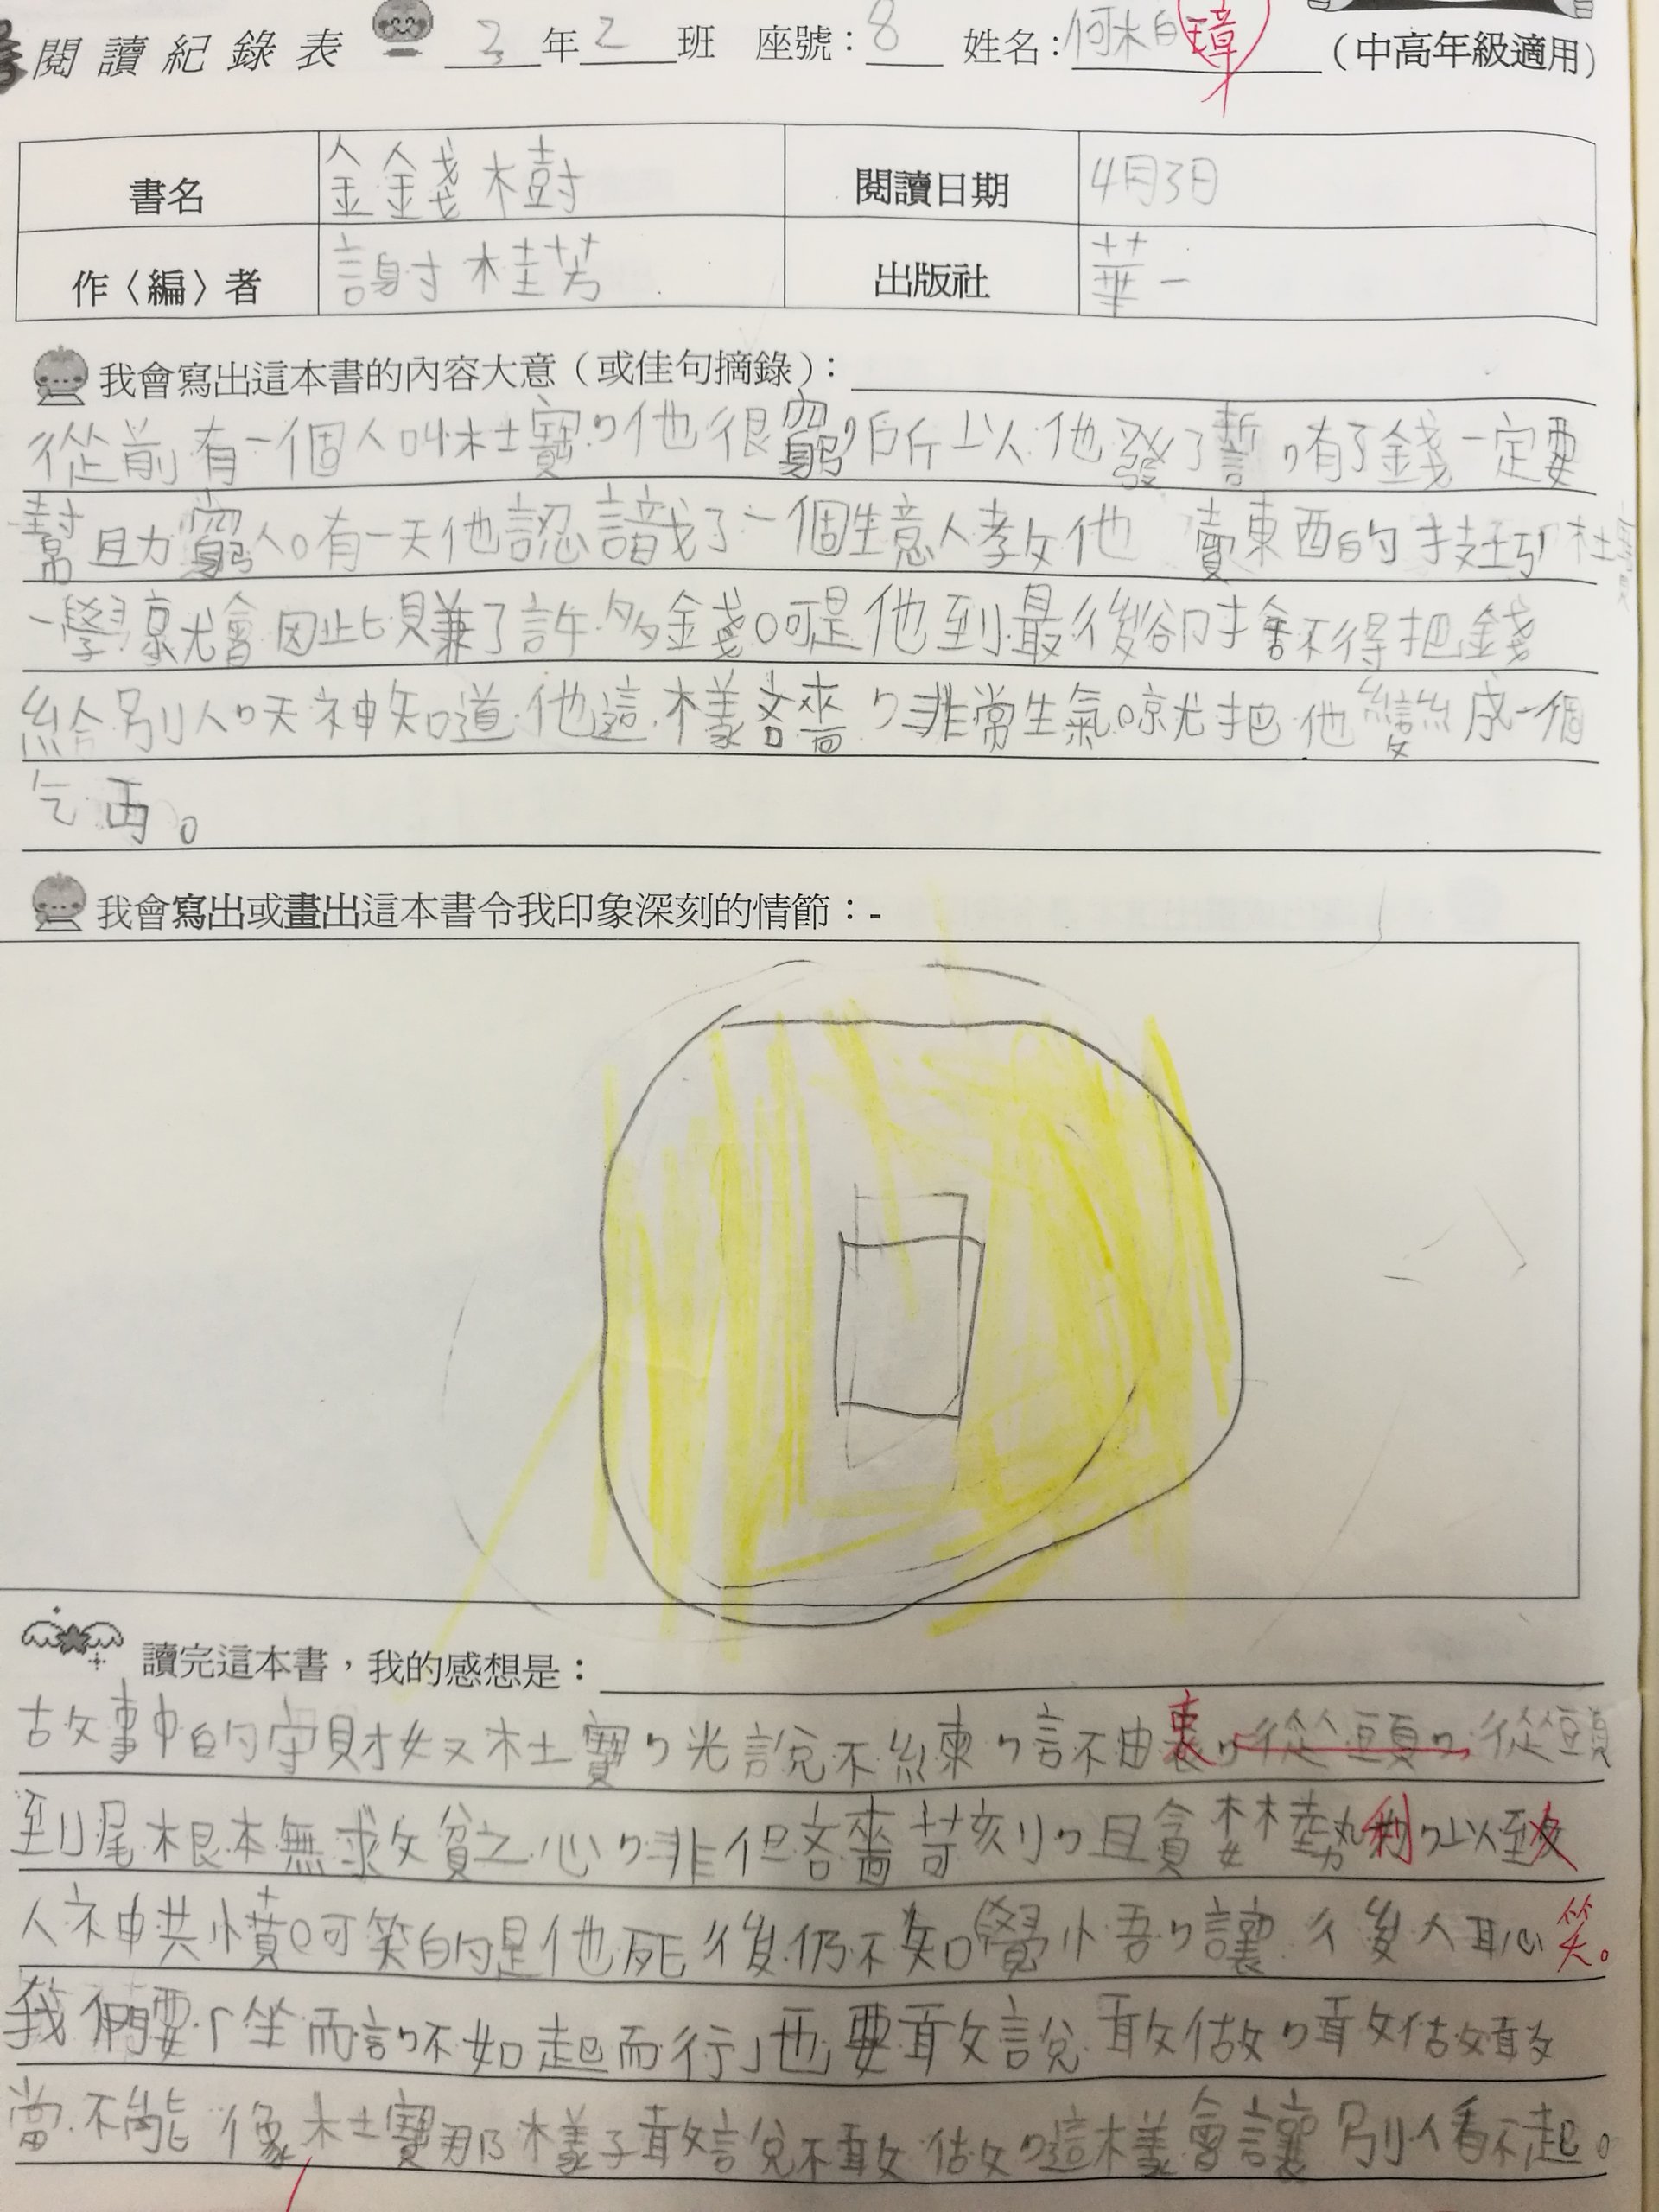 閱讀紀錄表 3年2班 座號：8 姓名：何柏璋（中高年級適用）
書名 金錢樹 閱讀日期 4月3日
作〈編〉者 謝桂芳 出版社 華一
我會寫出這本書的內容大意（或佳句摘錄）：
從前有一個人叫杜寶，他很窮，所以他發了誓，有了錢一定要
幫助窮人。有一天他認識了一個生意人教他賣東西的技巧，杜
一學就會因此賺了許多錢。可是他到最後卻捨不得把錢
給別人，天神知道他這樣吝嗇，非常生氣。就把他變成一個
乞丐。
我會寫出或畫出這本書令我印象深刻的情節：-
讀完這本書，我的感想是：
故事中的守財奴杜寶，光說不練，言不由衷，從頭，從頭
到尾根本無救貧之心，非但吝嗇苛刻，且貪婪勢利，以致
人神共憤。可笑的是他死後仍不知覺悟，讓後人恥笑。
我們要「坐而言不如起而行」也要敢說敢做，敢做敢
當不能像杜寶那樣子敢說不敢做，這樣會讓別人看不起。